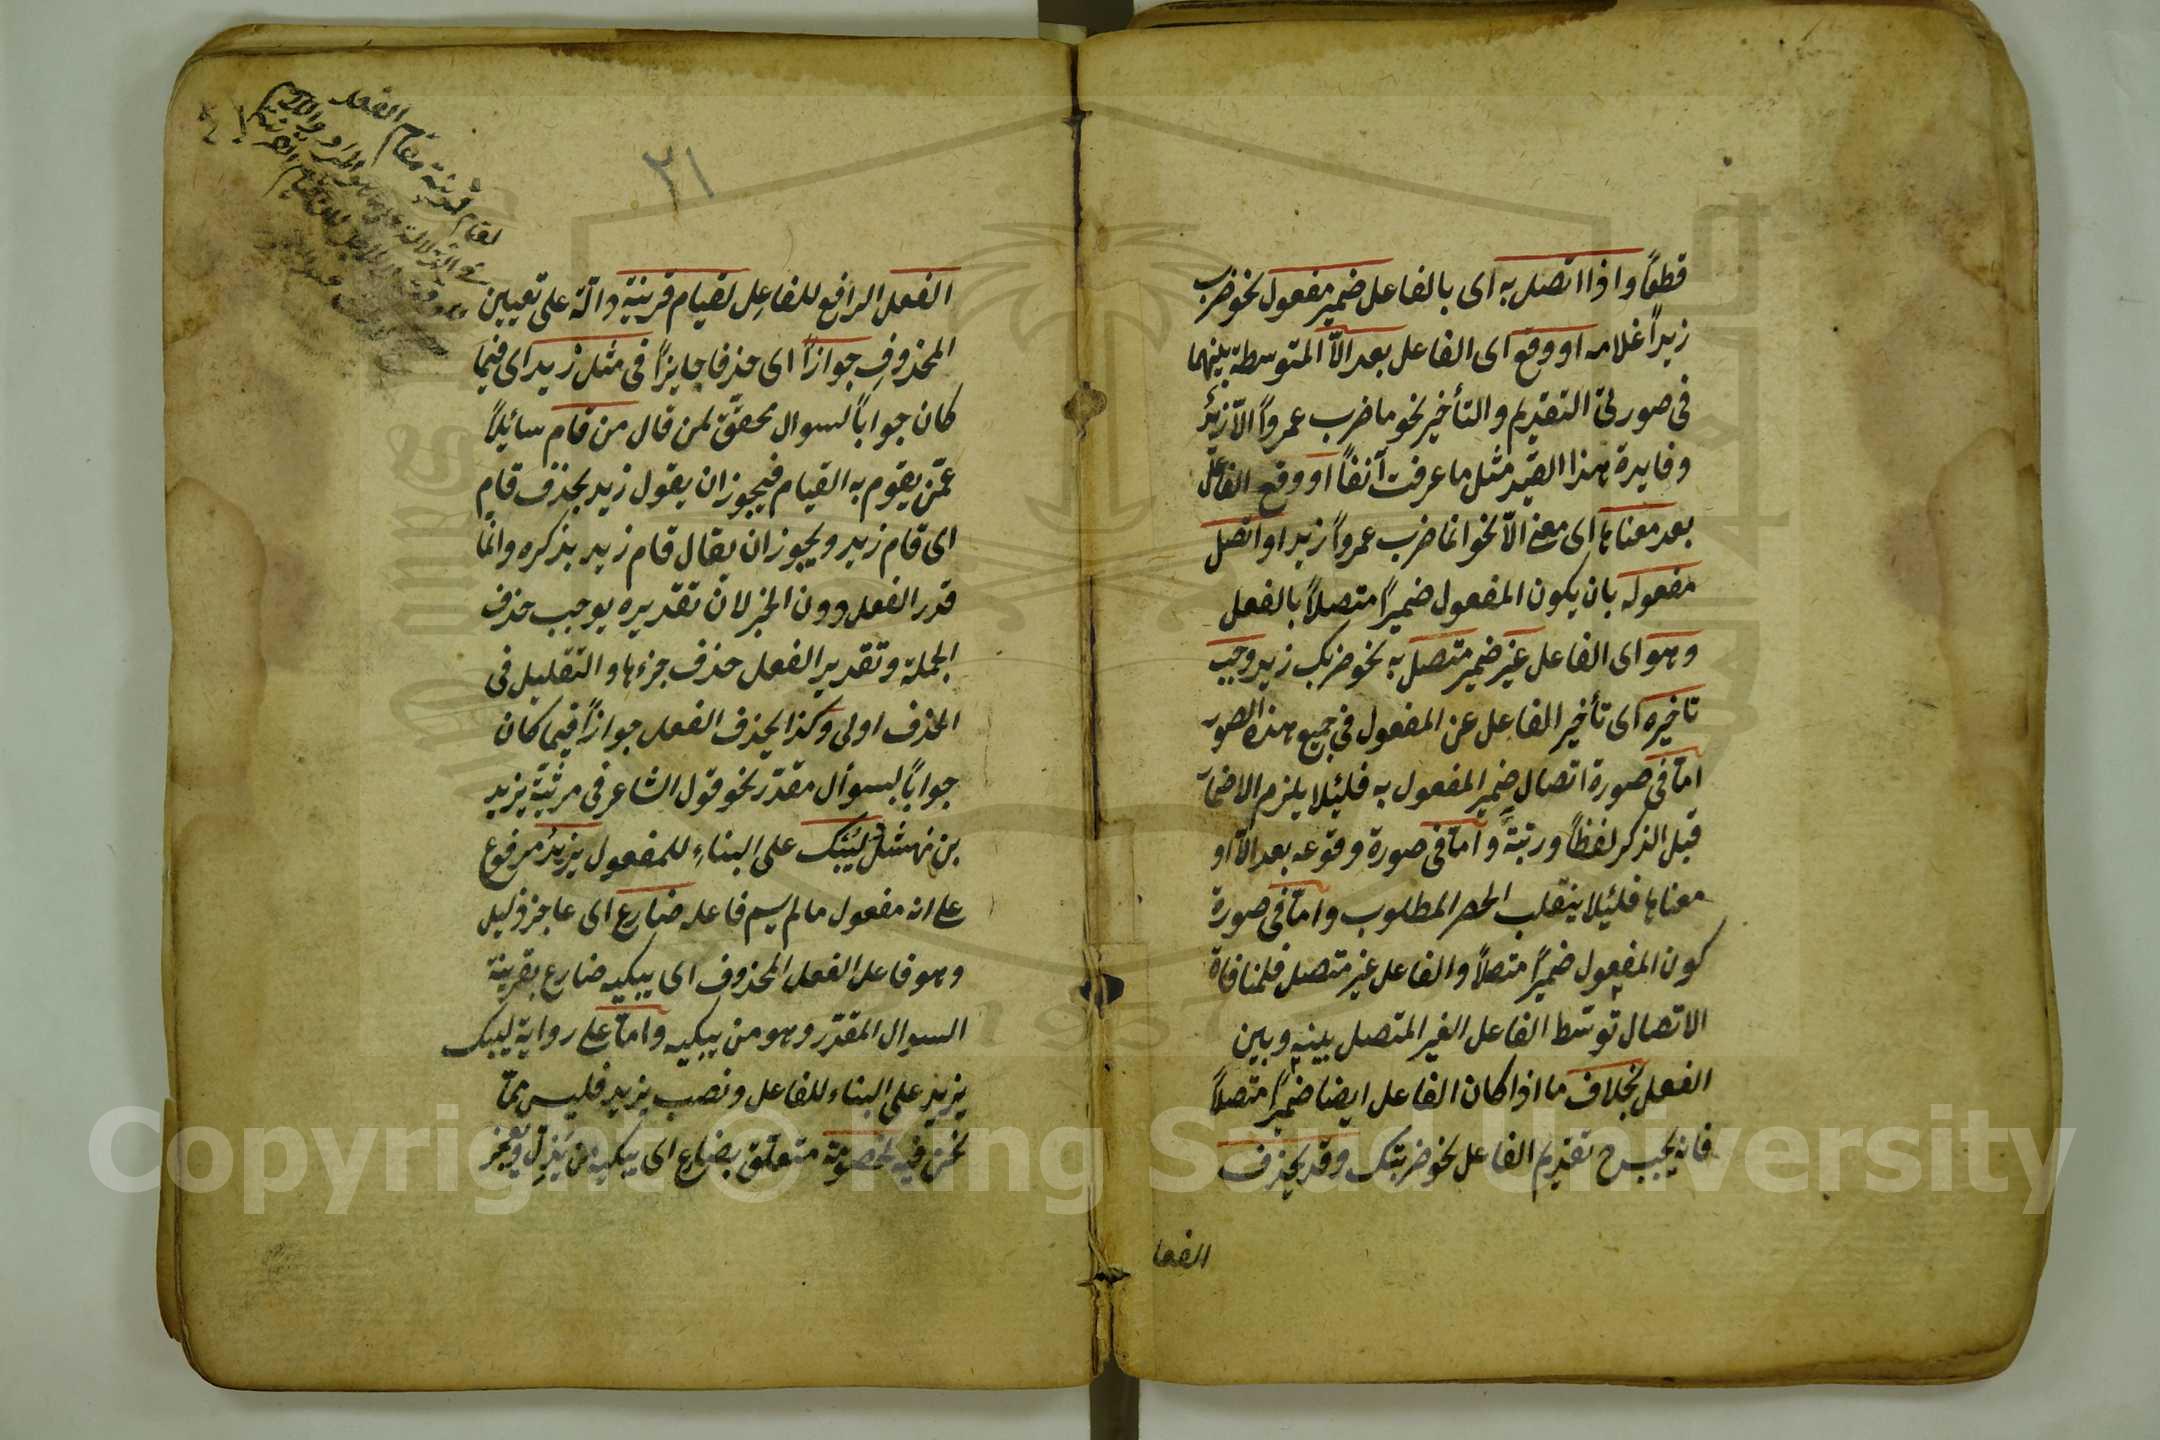 قطعًا واذا اتصل به اى بالفاعل ضمير مفعول نحو ضرب
زيداً غلامه او وقع اى الفاعل بعد الاّ المتوسطة بينهما
فى صورتى التقديم والتأخير نحو ما ضرب عمرواً الاّ زيدٌ
وفايدة هذا القيد مثل ما عرفت آنفاً او وقع الفاعل
بعد معناها اى معنى الاّ نحو انما ضرب عمرواً زيد او اتصل
مفعوله بان يكون المفعول ضميراً متصلاً بالفعل
وهو اى الفاعل غير ضمير متصل به نحو ضربك زيد وجب
تاخيره اى تأخير الفاعل عن المفعول فى جميع هذه الصور
امّا فى صورة اتصال ضمير المفعول به فلئيلا يلزم الاضمار
قبل الذكر لفظاً ورتبةً وامّا فى صورة وقوعه بعد الاّ او
معناها فلئيلا ينقلب الحصر المطلوب وامّا فى صورة
كون المفعول ضميراً متصلاً والفاعل غير متصل فلمنافاة
الاتصال توسّط الفاعل الغير المتصل بينه وبين
الفعل بخلاف ما اذا كان الفاعل ايضا ضميراً متصلاً
فانه يجب ح تقديم الفاعل نحو ضربتك وقد يحذف
الفعل
٢١
الفعل الرافع للفاعل لقيام قرينة دالّة على تعيين
المحذوف جوازاً اى حذفا جايزاً فى مثل زيد اى فيما
كان جواباً لسوال محقّق لمن قال من قام سائيلاً
عمّن يقوم به القيام فيجوز ان يقول زيد بحذف قام
اى قام زيد ويجوز ان يقال قام زيد بذكره وانّما
قدر الفعل دون الخبر لان تقديره يوجب حذف
الجملة وتقدير الفعل حذف جزءها والتقليل فى
الحذف اولى وكذا يحذف الفعل جوازاً فيما كان
جواباً لسوأل مقدّر نحو قول الشاعر فى مرثيّة يزيد
بن نهشل لِيُبْك على البناءِ للمفعول يزيدُ مرفوع
على انه مفعول ما لم يسم فاعله ضارع اى عاجز ذليل
وهو فاعل الفعل المحذوف اى يبكيه ضارع بقرينة
السوال المقدّر وهو من يبكيه وامّا على رواية ليبك
يزيد على البناء للفاعل ونصب يزيد فليس ممّا
نحن فيه لخصومة متعلّق بضارع اى يبكيه من يذلّ ويعجز